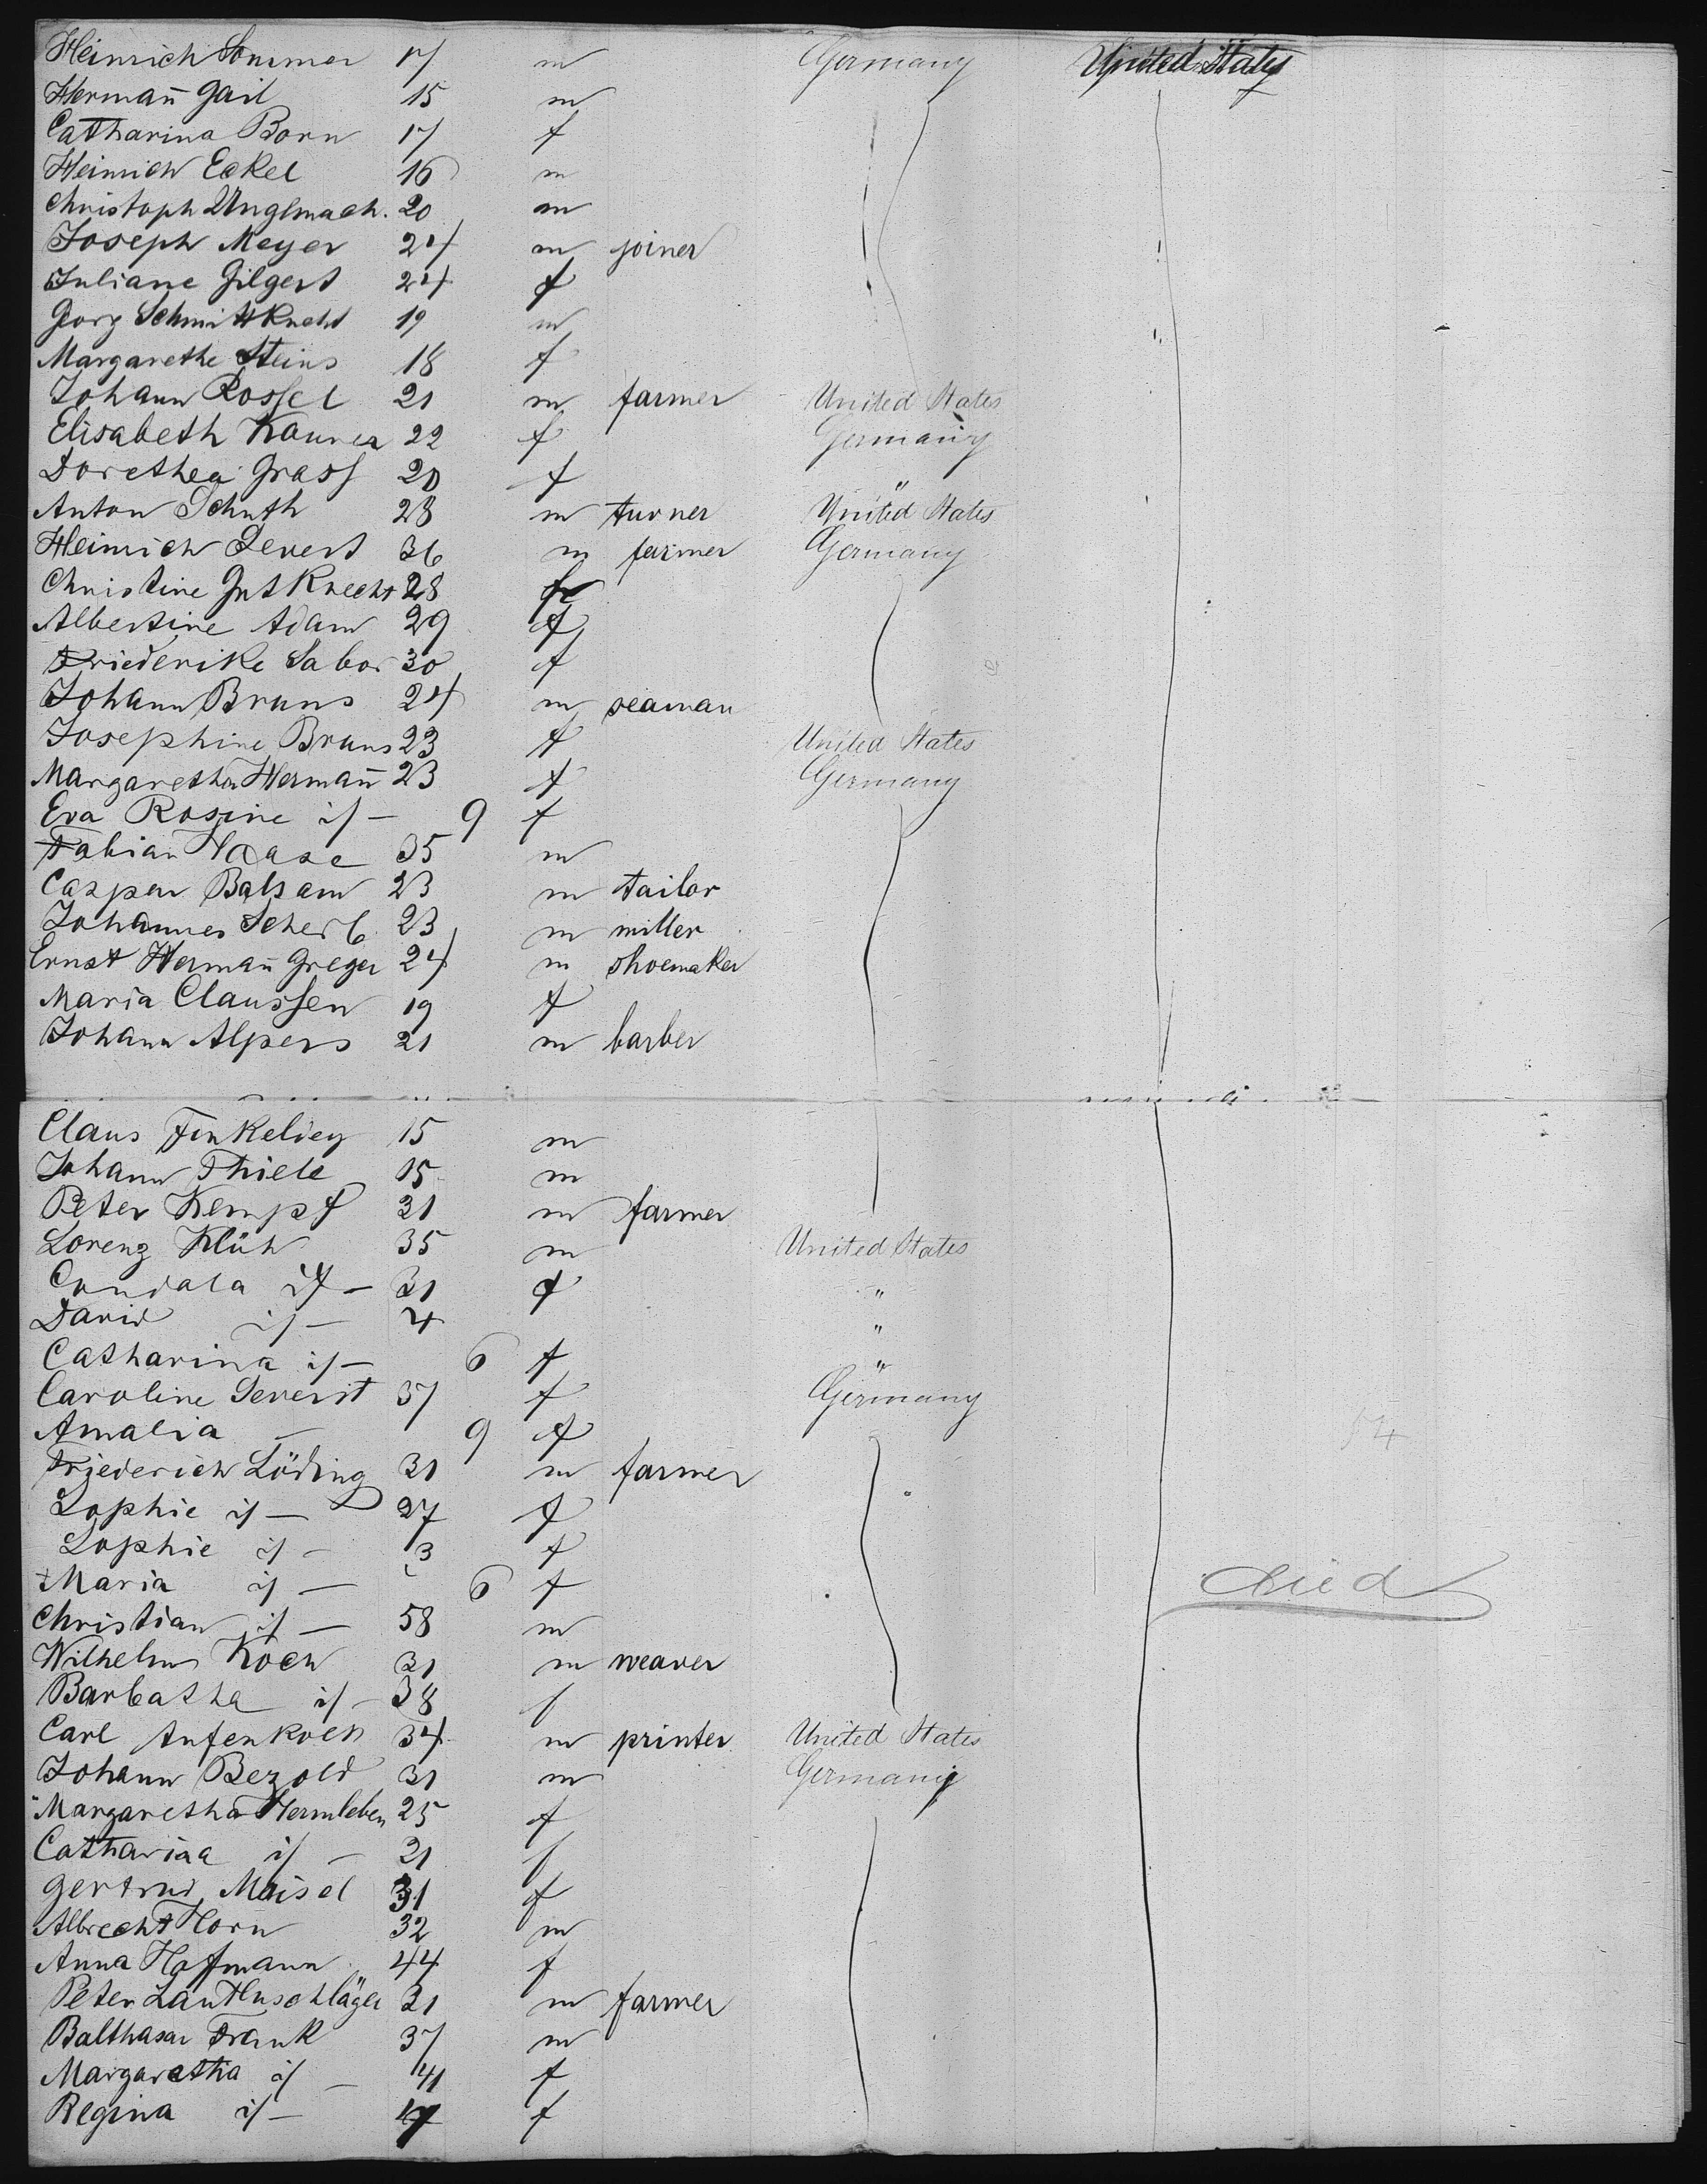 Heinrich Sommer 17 m Germany United States
Hermañ Gail 15 m
Catharina Born 17 f
Heinrich Eckel 16 m
Christoph Unglmach. 20 m
Joseph Meyer 24 m joiner
Juliane Gilgert 24 f
Georg Schmittknecht 19 m
Margarethe Steins 18 f
Johann Rossel 21 m farmer United States
Elisabeth 22 f Germany
Dorethea Grass 20 f "
Anton Schuth 23 m turner United States
Heinrich Severt 36 m farmer Germany
Christine Gutknecht 28 f
Albertine Adam 29 f
Friederike Sabor 30 f
Johann Bruns 24 m seaman
Josephine Bruns 23 f United States
Margaretha Hermañ 23 f Germany
Eva Rosine i/ — 9 f
Fabian Haase 35 m
Caspar Balsam 23 m tailor
Johannes Scherb 23 m miller
Ernst Hermañ Greger 24 m shoemaker
Maria Claussen 19 f
Johann Alpers 21 m barber
Claus Finkeldey 15 m
Johann Thiele 15 m
Peter Kempf 31 m farmer
Lorenz Klüh 35 m United States
Condala i/ — 31 f "
David i/ — 4 "
Catharina i/ — 6 f "
Caroline Severit 37 f Germany
Amalia — 9 f 54
Friederich Löding 31 m farmer
Sophie i/ — 27 f
Sophie i/ — 3 f
Maria i/ — 6 f died
Christian i/ — 58 m
Wilhelm Koch 31 m weaver
Barbatha i/ — 38 f
Carl Aufenkoch 34 m printer United States
Johann Bezold 31 m Germany
Margaretha Hermleben 25 f
Catharina i/ — 21 f
Gertrud Maisel 31 f
Albrecht Horn 32 m
Anna Hoffmann 44 f
Peter Lautenschläger 31 m farmer
Balthasar Frank 37 m
Margaretha i/ — 41 f
Regina i/ — f